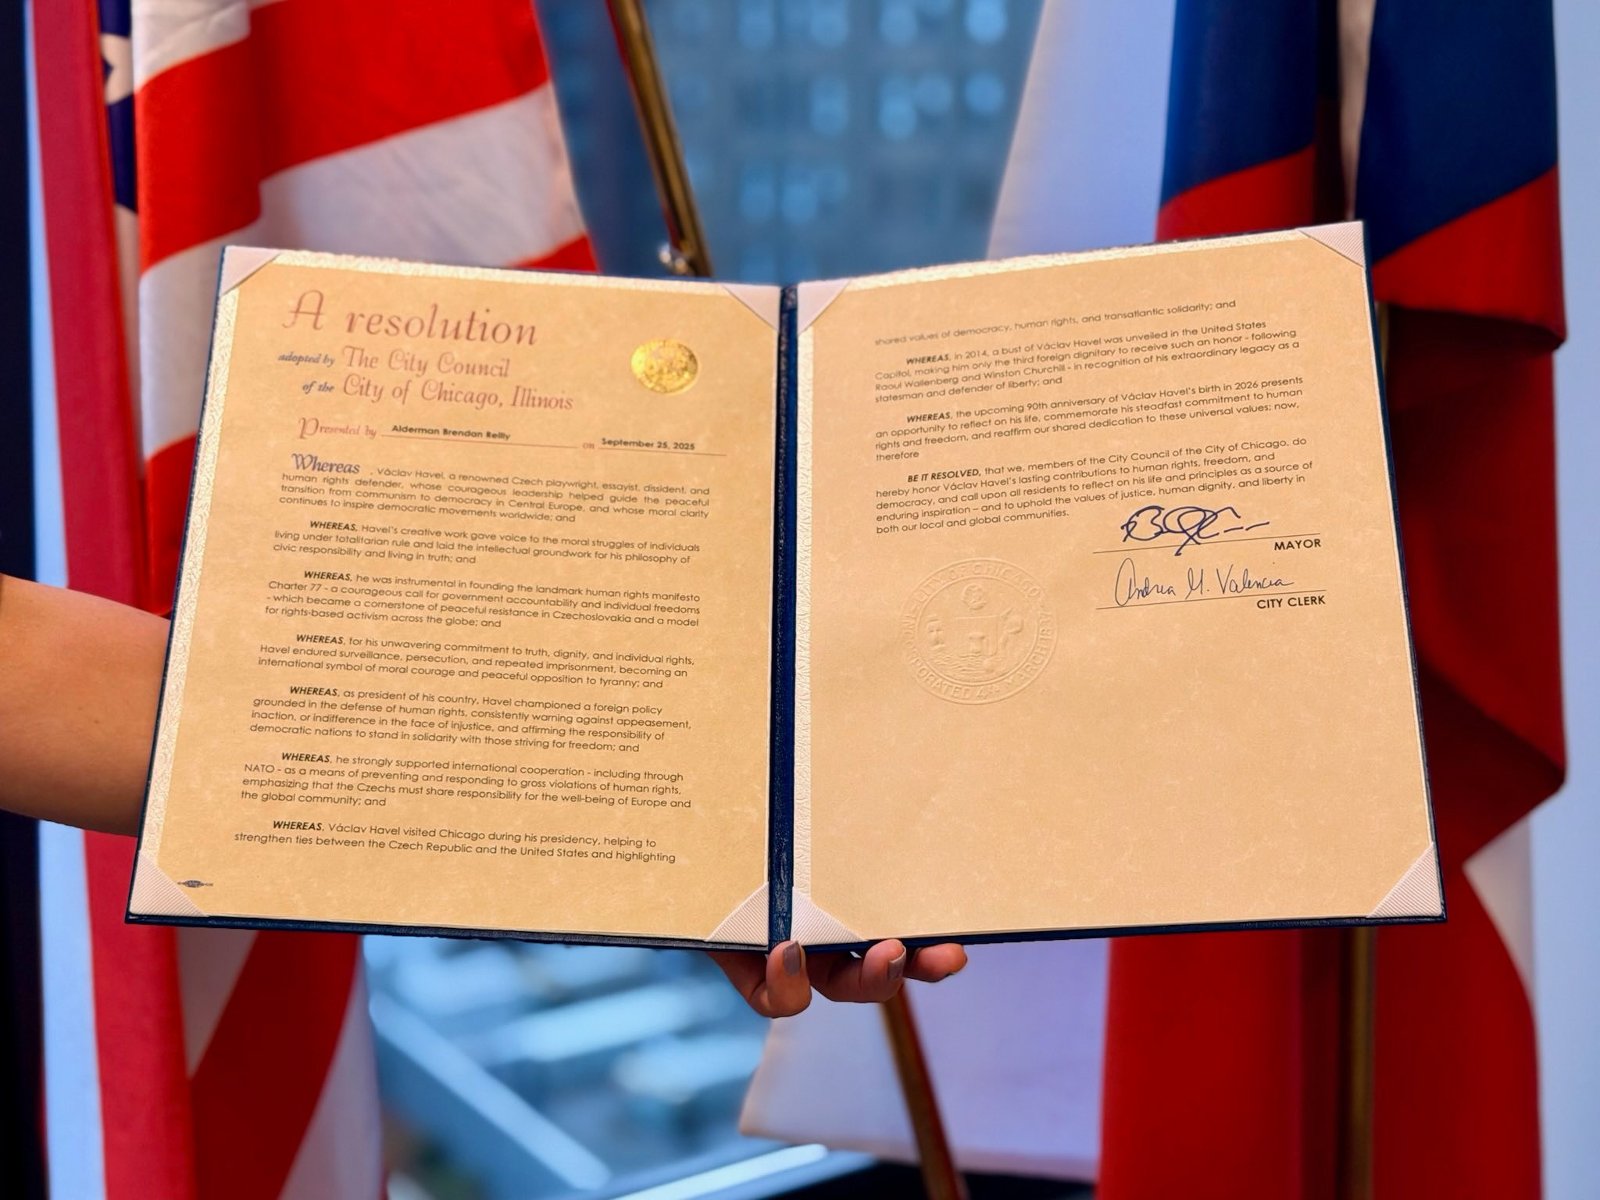 A resolution
adopted by The City Council
of the City of Chicago, Illinois
Presented by Alderman Brendan Reilly on September 25, 2025
Whereas, Václav Havel, a renowned Czech playwright, essayist, dissident, and
human rights defender, whose courageous leadership helped guide the peaceful
transition from communism to democracy in Central Europe, and whose moral clarity
continues to inspire democratic movements worldwide; and
WHEREAS, Havel's creative work gave voice to the moral struggles of individuals
living under totalitarian rule and laid the intellectual groundwork for his philosophy of
civic responsibility and living in truth; and
WHEREAS, he was instrumental in founding the landmark human rights manifesto
Charter 77 - a courageous call for government accountability and individual freedoms
- which became a cornerstone of peaceful resistance in Czechoslovakia and a model
for rights-based activism across the globe; and
WHEREAS, for his unwavering commitment to truth, dignity, and individual rights,
Havel endured surveillance, persecution, and repeated imprisonment, becoming an
international symbol of moral courage and peaceful opposition to tyranny; and
WHEREAS, as president of his country, Havel championed a foreign policy
grounded in the defense of human rights, consistently warning against appeasement,
inaction, or indifference in the face of injustice, and affirming the responsibility of
democratic nations to stand in solidarity with those striving for freedom; and
WHEREAS, he strongly supported international cooperation - including through
NATO - as a means of preventing and responding to gross violations of human rights,
emphasizing that the Czechs must share responsibility for the well-being of Europe and
the global community; and
WHEREAS, Václav Havel visited Chicago during his presidency, helping to
strengthen ties between the Czech Republic and the United States and highlighting
shared values of democracy, human rights, and transatlantic solidarity; and
WHEREAS, in 2014, a bust of Václav Havel was unveiled in the United States
Capitol, making him only the third foreign dignitary to receive such an honor - following
Raoul Wallenberg and Winston Churchill - in recognition of his extraordinary legacy as a
statesman and defender of liberty; and
WHEREAS, the upcoming 90th anniversary of Václav Havel's birth in 2026 presents
an opportunity to reflect on his life, commemorate his steadfast commitment to human
rights and freedom, and reaffirm our shared dedication to these universal values; now,
therefore
BE IT RESOLVED, that we, members of the City Council of the City of Chicago, do
hereby honor Václav Havel's lasting contributions to human rights, freedom, and
democracy, and call upon all residents to reflect on his life and principles as a source of
enduring inspiration – and to uphold the values of justice, human dignity, and liberty in
both our local and global communities.
MAYOR
Andrea M. Valencia
CITY CLERK